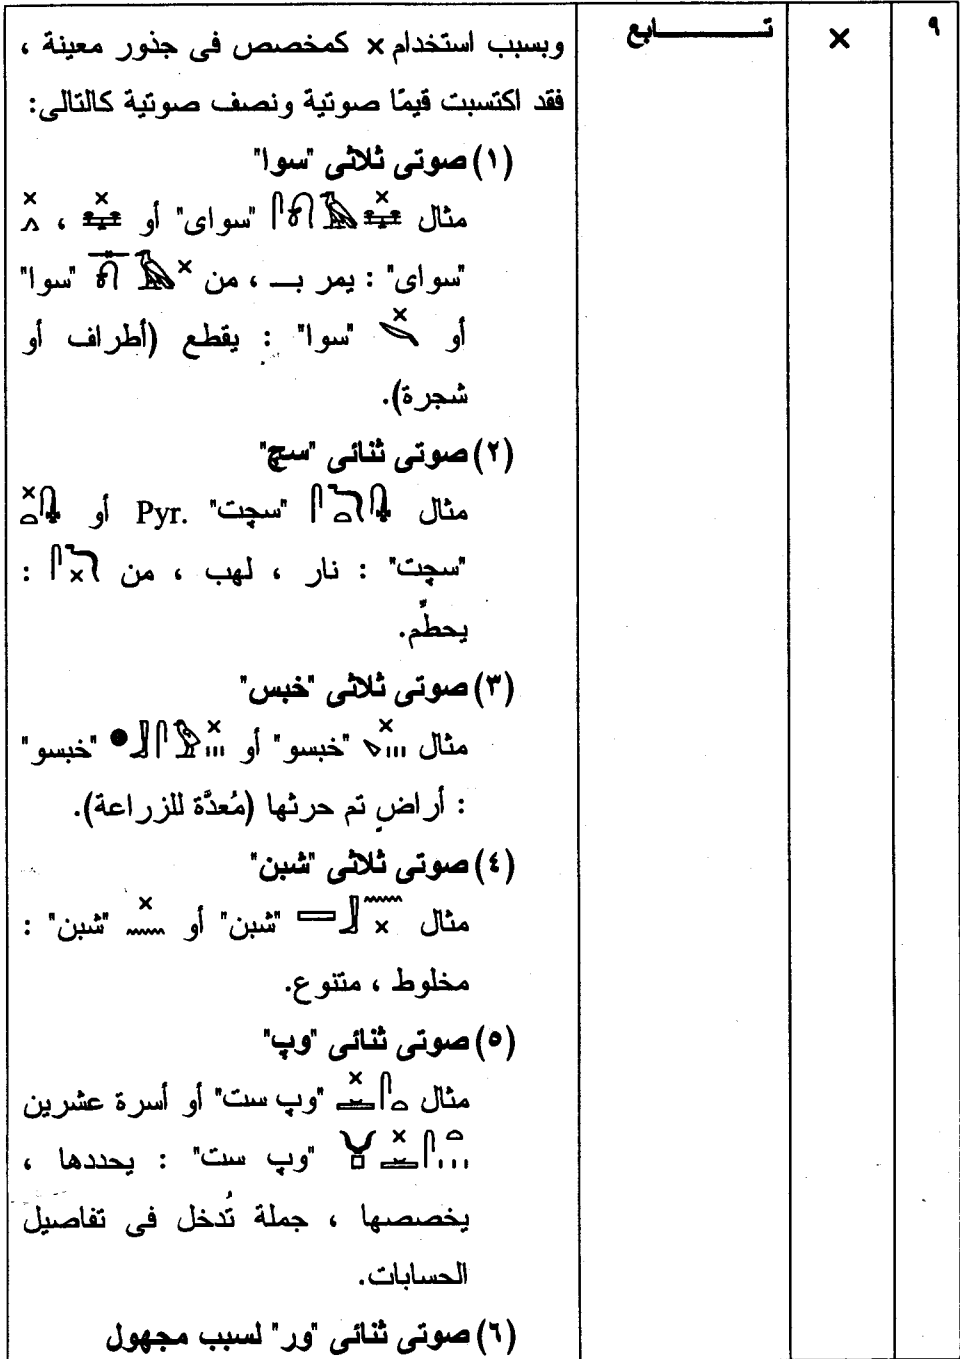 ٩
×
تابع
وبسبب استخدام × كمخصص فى جذور معينة ،
فقد اكتسبت قيمًا صوتية ونصف صوتية كالتالى:
(١) صوتى ثلاثى "سوا"
مثال "سواى" أو ،
"سواى" : يمر بـ ، من "سوا"
أو "سوا" : يقطع (أطراف أو
شجرة).
(٢) صوتى ثنائى "سچ"
مثال "سچت" .Pyr أو
"سچت" : نار ، لهب ، من :
يحطِّم.
(٣) صوتى ثلاثى "خبس"
مثال "خبسو" أو "خبسو"
: أراضٍ تم حرثها (مُعدَّة للزراعة).
(٤) صوتى ثلاثى "شبن"
مثال "شبن" أو "شبن" :
مخلوط ، متنوع.
(٥) صوتى ثنائى "وپ"
مثال "وپ ست" أو أسرة عشرين
"وپ ست" : يحددها ،
يخصصها ، جملة تُدخل فى تفاصيل
الحسابات.
(٦) صوتى ثنائى "ور" لسبب مجهول